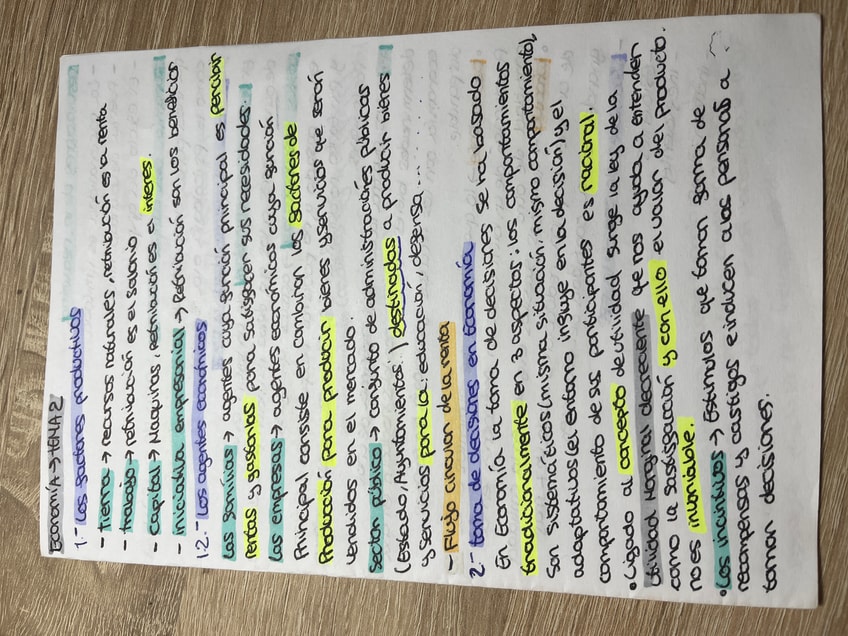 Economía → TEMA 2
1- Los factores productivos
- Tierra → recursos naturales, retribución es a renta
- trabajo → retribución es el salario
- capital → Maquinas, retribución es el interes.
- iniciativa empresarial → Retribución son los beneficios
1.2.- Los agentes económicos
Las familias → agentes cuya función principal es percibir
rentas y gastarlas para satisfacer sus necesidades.
Las empresas → agentes económicos cuya función
Principal consiste en combinar los factores de
Producción para producir bienes y servicios que serán
vendidos en el mercado.
Sector público → conjunto de administraciones públicas
(estado, Ayuntamientos..) destinadas a producir bienes
y servicios para la educación, defensa......
- Flujo circular de la renta
2- toma de decisiones en Economía
En Economía la toma de decisiones se ha basado
tradicionalmente en 3 aspectos: los comportamientos
son sistemáticos (misma situación, mismo comportamiento),
adaptativos (el entorno influye en la decisión) y el
comportamiento de sus participantes es racional.
• Ligado al concepto de utilidad surge la ley de la
utilidad Marginal decreciente que nos ayuda a entender
como la satisfacción y con ello el valor del producto
no es invariable.
• Los incentivos → Estímulos que toman forma de
recompensas y castigos e inducen a las personas a
tomar decisiones.